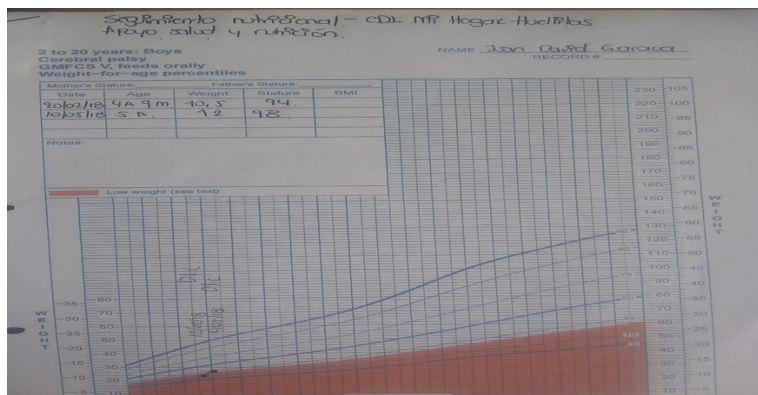 Seguimiento nutricional - CDI Mi Hogar Huellitas
Apoyo, salud y nutrición.
2 to 20 years: Boys
Cerebral palsy
GMFCS V, feeds orally
Weight-for-age percentiles
NAME Juan David Guaraca
RECORD #
Mother's Stature: Father's Stature:
Date Age Weight Stature BMI
20/02/18 4A 9m 10,5 94
10/05/18 5A. 12 98
Notes:
Low weight (see text)
230 105
220 100
210 95
200 90
190 85
180 80
170
160
150 70
140 65
130
120 55
110 50
100 45
90 40
80 35
70
60 30
50 25
40 20
30 15
20
10 5
WEIGHT
WEIGHT
35 80
30 70
25 60
50
20 40
15 30
10 20
5 10
95
90
75
50
25